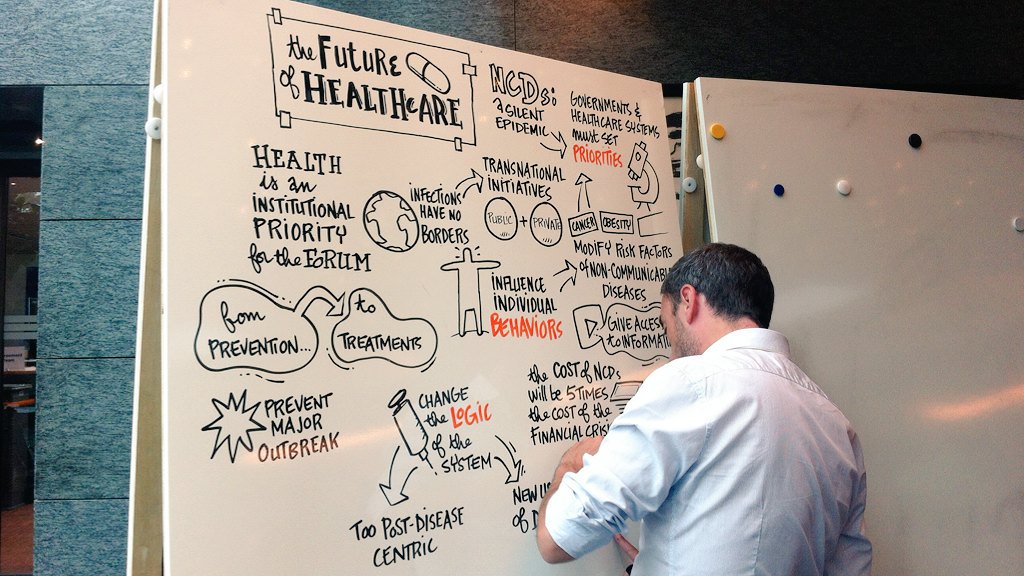 the FUTURE
of HEALTHCARE
NCDs:
a SILENT
EPIDEMIC
GOVERNMENTS &
HEALTHCARE SYSTEMS
must SET
PRIORITIES
HEALTH
is an
INSTITUTIONAL
PRIORITY
for the FORUM
INFECTIONS
HAVE NO
BORDERS
TRANSNATIONAL
INITIATIVES
PUBLIC + PRIVATE
CANCER OBESITY
MODIFY RISK FACTORS
of NON-COMMUNICABLE
DISEASES
INFLUENCE
INDIVIDUAL
BEHAVIORS
GIVE ACCESS
to INFORMAT
from
PREVENTION...
to
TREATMENTS
the COST of NCDs
will be 5 TIMES
the COST of the
FINANCIAL CRISI
PREVENT
MAJOR
OUTBREAK
CHANGE
the LOGIC
of the
SYSTEM
TOO POST-DISEASE
CENTRIC
NEW
of